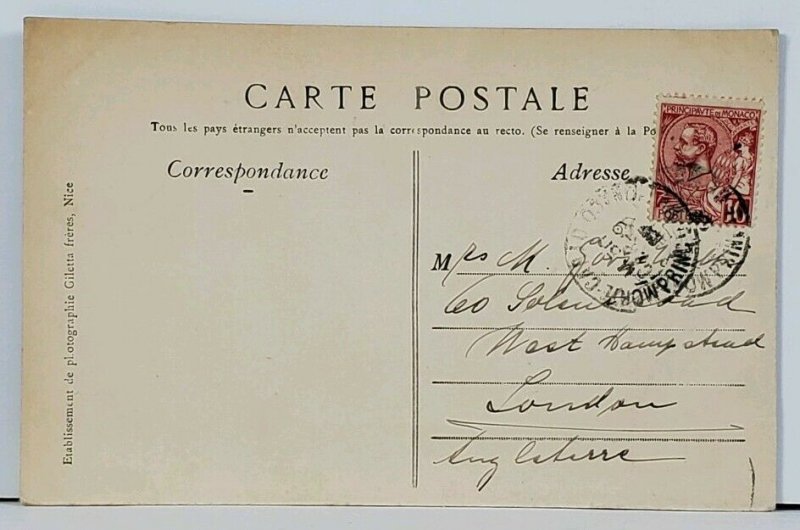 CARTE POSTALE
Tous les pays étrangers n'acceptent pas la correspondance au recto. (Se renseigner à la Po
Correspondance
Adresse
PRINCIPAUTÉ DE MONACO
Mrs M.
60 Road
West Hampstead
London
Angleterre
Etablissement de photographie Giletta frères, Nice